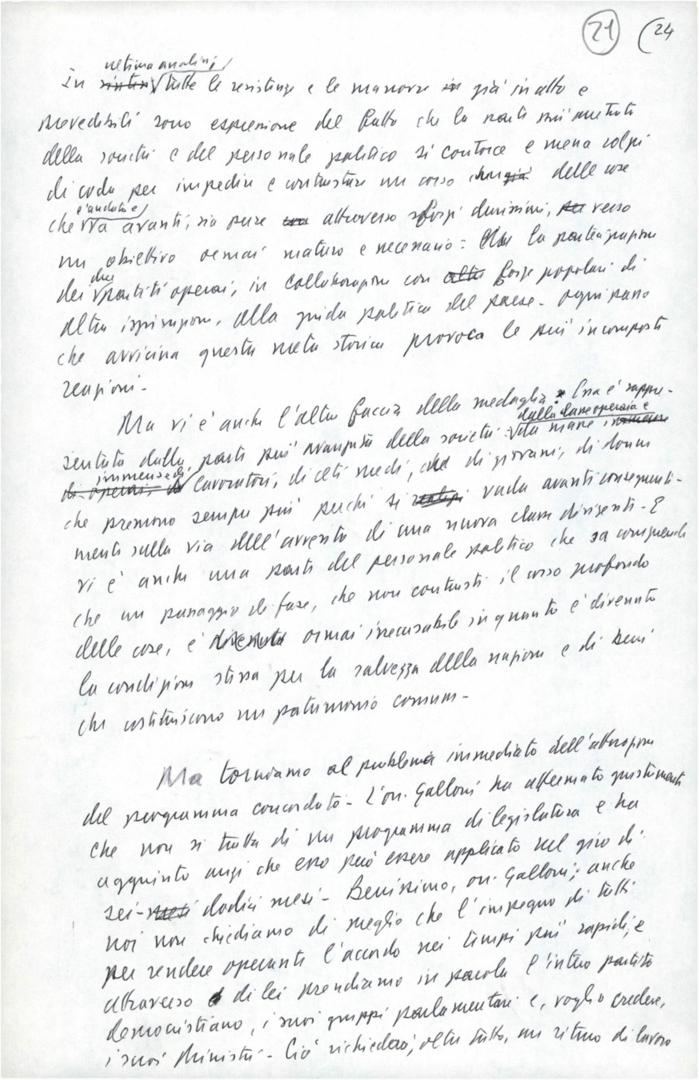 21 24
ultima analisi
In sintesi tutte le resistenze e le manovre in già in atto e
prevedibili sono espressione del fatto che la parte più retriva
della società e del personale politico si contorce e mena colpi
di coda per impedire e contrastare un corso delle cose
che è andato e va avanti, sia pure attraverso sforzi durissimi, verso
un obiettivo ormai maturo e necessario: la partecipazione
dei due partiti operai, in collaborazione con altre forze popolari di
altra ispirazione, alla guida politica del paese - ogni passo
che avvicina questa meta storica provoca le più incomposte
reazioni -
Ma vi è anche l'altra faccia della medaglia. Essa è rappre-
sentata dalla parte più avanzata della società: dalla classe operaia e da masse immense
immense di
di operai, di lavoratori, di ceti medi, di giovani, di donne
che premono sempre più perché si vada avanti conseguente-
mente sulla via dell'avvento di una nuova classe dirigente - E
vi è anche una parte del personale politico che sa comprendere
che un passaggio di fase, che non contrasti il corso profondo
delle cose, è divenuto ormai irrecusabile in quanto è divenuto
la condizione stessa per la salvezza della nazione e di beni
che costituiscono un patrimonio comune -
Ma torniamo al problema immediato dell'attuazione
del programma concordato - L'on. Galloni ha affermato giustamente
che non si tratta di un programma di legislatura e ha
aggiunto anzi che esso può essere applicato nel giro di
sei-mesi dodici mesi - Benissimo, on. Galloni; anche
noi non chiediamo di meglio che l'impegno di tutti
per rendere operante l'accordo nei tempi più rapidi, e
attraverso di lei prendiamo in parola l'intero partito
democristiano, i suoi gruppi parlamentari e, voglio credere,
i suoi Ministri - Ciò richiederà, oltre tutto, un ritmo di lavoro